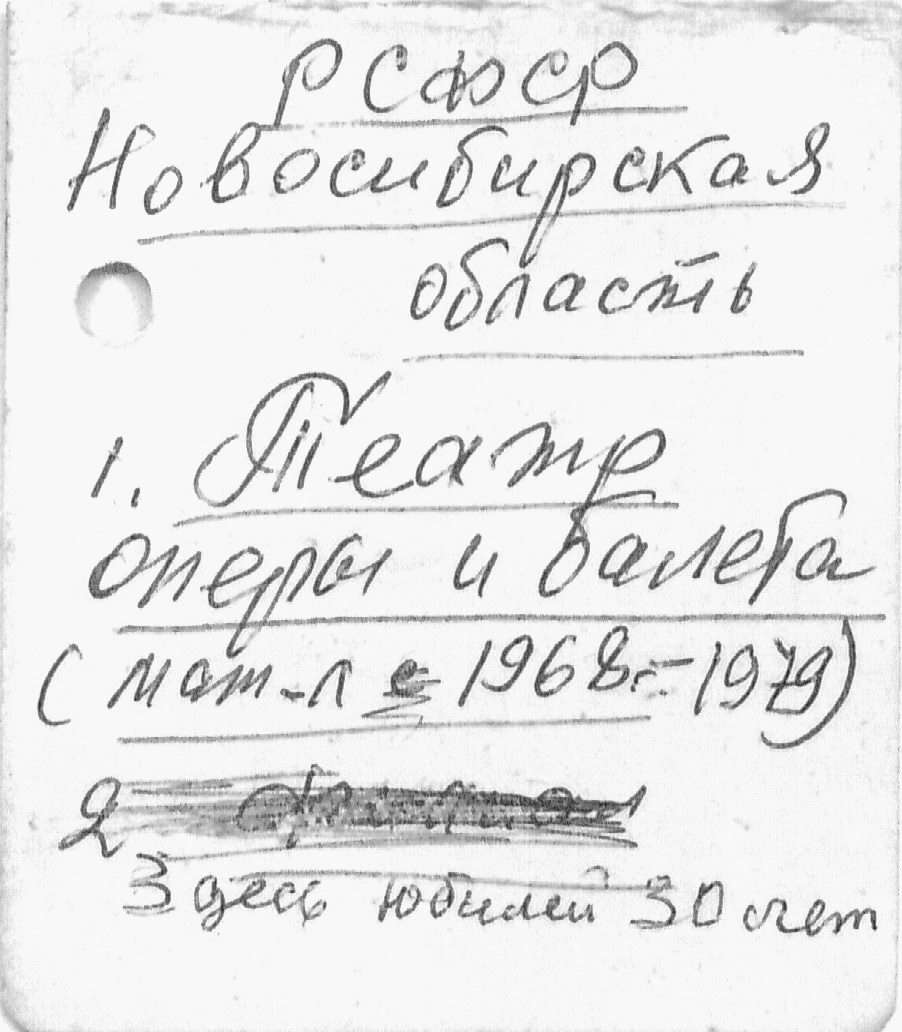 РСФСР
Новосибирская
область
1. Театр
оперы и балета
(мат-л с 1968-1979)
2
Здесь юбилей 30 счет